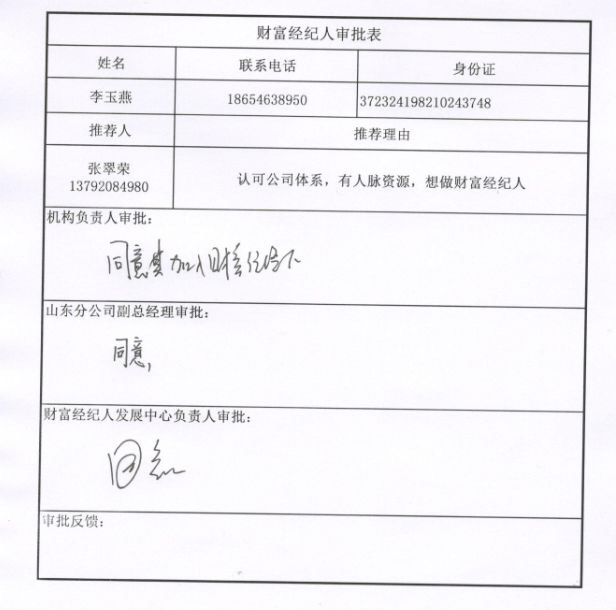 财富经纪人审批表
姓名 联系电话 身份证
李玉燕 18654638950 372324198210243748
推荐人 推荐理由
张翠荣
13792084980
认可公司体系，有人脉资源，想做财富经纪人
机构负责人审批：
同意其加入
山东分公司副总经理审批：
同意，
财富经纪人发展中心负责人审批：
同意
审批反馈：